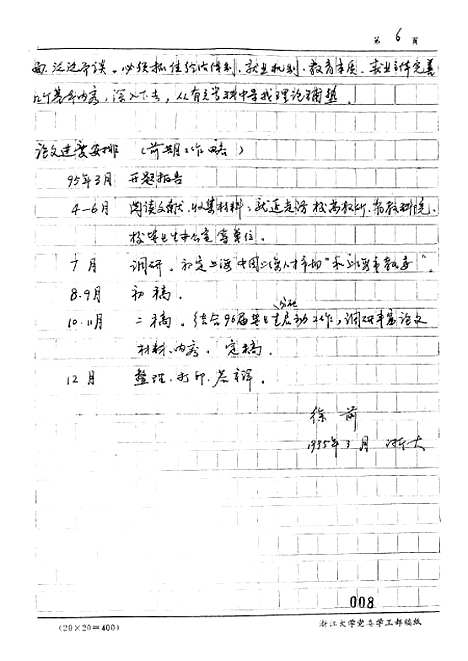 第 6 页
面、泛泛而谈。必须抓住经济体制、就业机制、教育本质、就业主体完善
的基本内容，深入下去，从有关学科中寻找理论铺垫。
论文进度安排 (前期工作略)
95年3月 开题报告
4-6月 阅读文献、收集材料、就近走访校高教所、省教科院、
校毕业生办公室等单位。
7月 调研。初定上海中国
8.9月 初稿。
10.11月 二稿。结合96届毕业生启动工作，调研丰富论文
分配
材料、内容。定稿。
12月 整理、打印、答辩。
徐前
1995年3月 浙大
008
(20×20=400) 浙江大学党委学工部稿纸